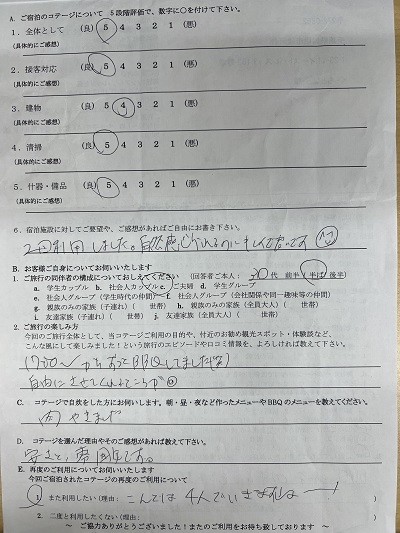 A. ご宿泊のコテージについて 5段階評価で、数字に○を付けて下さい。
1. 全体として (良) 5 4 3 2 1 (悪)
(具体的にご感想)
2. 接客対応 (良) 5 4 3 2 1 (悪)
(具体的にご感想)
3. 建物 (良) 5 4 3 2 1 (悪)
(具体的にご感想)
4. 清掃 (良) 5 4 3 2 1 (悪)
(具体的にご感想)
5. 什器・備品 (良) 5 4 3 2 1 (悪)
(具体的にご感想)
6. 宿泊施設に対してご要望や、ご感想があれば自由にお書き下さい。
2回利用しました。自然感じられるのに
B. お客様ご自身についてお伺いいたします
1. ご旅行の同伴者の構成についておしえてください (回答者ご本人: 30代 前半 半ば 後半)
a. 学生カップル b. 社会人カップル c. ご夫婦 d. 学生グループ
e. 社会人グループ(学生時代の仲間) f. 社会人グループ(会社関係や同一趣味等の仲間)
g. 親族のみの家族(子連れ)( 世帯) h. 親族のみの家族(全員大人)( 世帯)
i. 友達家族(子連れ)( 世帯) j. 友達家族(全員大人)( 世帯)
2. ご旅行の楽しみ方
今回のご旅行全体として、当コテージご利用の目的や、付近のお勧め観光スポット・体験談など、
こんな風にして楽しみました!という旅行のエピソードや口コミ情報を、よろしければ教えて下さい。
17:30〜 BBQしてました(笑)
自由にさせてくれるところが
C. コテージで自炊をした方にお伺いします。朝・昼・夜など作ったメニューやBBQのメニューを教えてください。
肉 やきそば
D. コテージを選んだ理由やそのご感想があれば教えて下さい。
安さと、雰囲気です。
E. 再度のご利用についてお伺いいたします
今回ご宿泊されたコテージの再度のご利用について
1. また利用したい(理由: こんどは 4人でいきますねー! )
2. 二度と利用したくない(理由: )
〜 ご協力ありがとうございました!またのご利用をお待ち致しております 〜